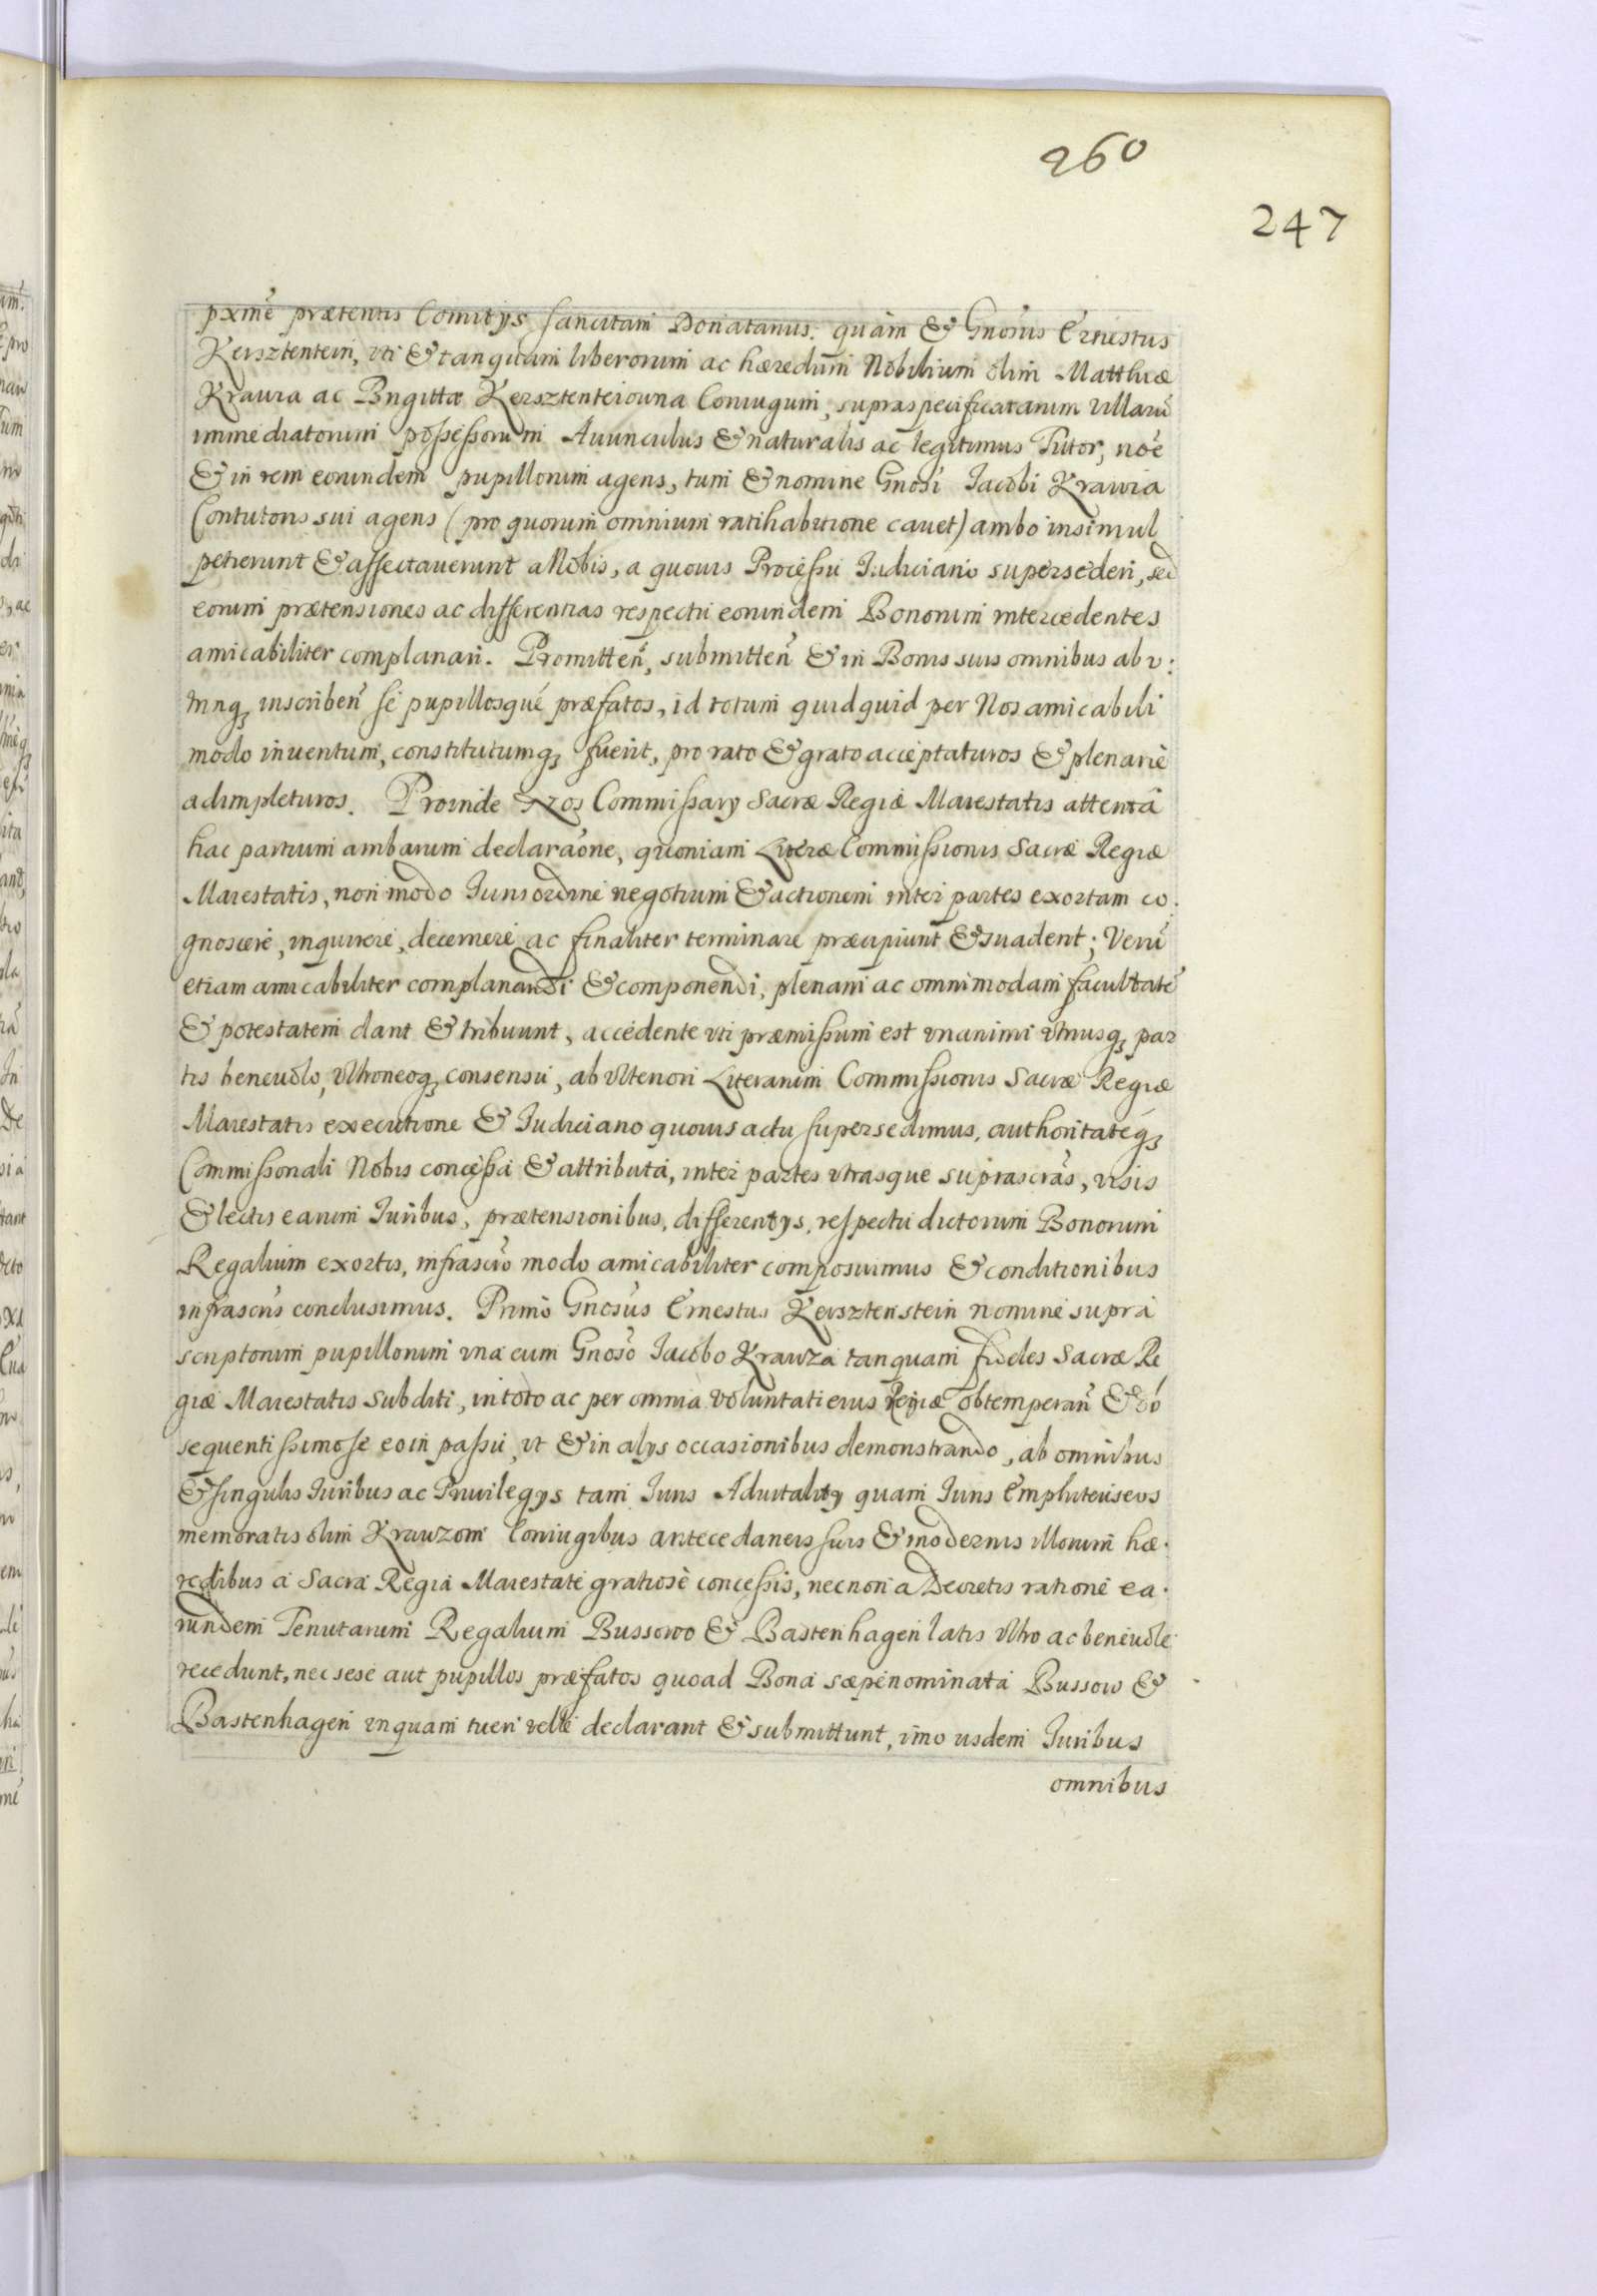 260
247
pxmē prætentis Comitÿs sancitam Donatarius: quàm & Gnosus Ernestus
Kersztentein, vti & tanquam liberorum ac hæredum Nobilium olim Matthiæ
Krawza ac Brigittæ Kersztenteiowna Coniugum, supraspecificatarum Villarū
immediatorum possessorum Auunculus & naturalis ac legitimus Tutor, noē
& in rem eorundem pupillorum agens, tum & nomine Gnosi Jacobi Krawza
Contutoris sui agens (pro quorum omnium ratihabitione cauet) ambo insimul
petierunt & affectauerunt a Nobis, a quouis Processu Judiciario supersederi, sed
eorum prætensiones ac differentias respectu eorundem Bonorum intercedentes
amicabiliter complanari. Promitteñ, submitteñ & in Bonis suis omnibus ab v:
trinq3 inscribeñ se pupillosqué præfatos, id totum quidquid per Nos amicabili
modo inuentum, constitutumq3 fuerit, pro rato & grato acceptaturos & plenariè
adimpleturos. Proinde Nos Commissarÿ Sacræ Regiæ Maiestatis attentâ
hac partium ambarum declaraōne, quoniam Literæ Commissionis Sacræ Regiæ
Maiestatis, non modo Jurisordine negotium & actionem inter partes exortam co:
gnoscere, inquirere, decernere ac finaliter terminare præcipiunt & suadent; Verū
etiam amicabiliter complanandi & componendi, plenam ac omnimodam facultatē
& potestatem dant & tribuunt, accedente vti præmissum est vnanimi vtriusq3 par
tis beneuolo, vltroneoq3 consensu, ab vlteriori Literarum Commissionis Sacræ Regiæ
Maiestatis executione & Judiciario quouis actu supersedimus, authoritateq3
Commissionali Nobis concessâ & attributâ, inter partes vtrasque suprascrās, visis
& lectis earum Juribus, prætensionibus, differentÿs, respectu dictorum Bonorum
Regalium exortis, infrascrō modo amicabiliter composuimus & conditionibus
infrascris conclusimus. Primò Gnosus Ernestus Kersztenstein nomine supra
scriptorum pupillorum vnà cum Gnoso Jacobo Krawza tanquam fideles Sacræ Re
giæ Maiestatis subditi, in toto ac per omnia voluntati eius Regiæ obtemperañ & ob
sequentissimos se eo in passu, vt & in alÿs occasionibus demonstrando, ab omnibus
& singulis Juribus ac Priuilegÿs tam Juris Aduitalitÿ quam Juris Emphiteuseos
memoratis olim Krawzom Coniugibus antecedaneis suis & modernis illorum hæ:
redibus à Sacra Regiâ Maiestate gratiosè concessis, necnon a Decretis ratione ea:
rundem Tenutarum Regalium Bussowo & Bastenhagen latis vltro ac beneuole
recedunt, nec sese aut pupillos præfatos quoad Bona sæpenominata Bussow &
Bastenhagen vnquam tueri velle declarant & submittunt, imo ijsdem Juribus
omnibus